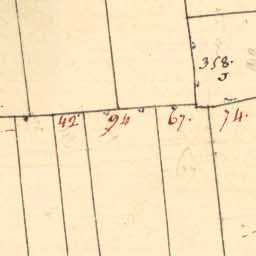 358.
J
42 94 67. 74.